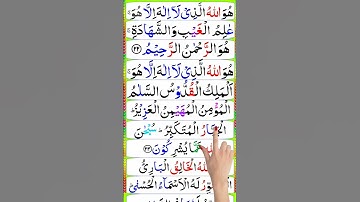 هُوَ اللّٰهُ الَّذِیْ لَاۤ اِلٰهَ اِلَّا هُوَ ۚ
عٰلِمُ الْغَیْبِ وَ الشَّهَادَةِ ۚ
هُوَ الرَّحْمٰنُ الرَّحِیْمُ ﴿۲۲﴾
هُوَ اللّٰهُ الَّذِیْ لَاۤ اِلٰهَ اِلَّا هُوَ ۚ
اَلْمَلِكُ الْقُدُّوْسُ السَّلٰمُ
الْمُؤْمِنُ الْمُهَیْمِنُ الْعَزِیْزُ
الْمُتَكَبِّرُ ؕ سُبْحٰنَ
یُشْرِكُوْنَ ﴿۲۳﴾
اللّٰهُ الْخَالِقُ الْبَارِئُ
لَهُ الْاَسْمَآءُ الْحُسْنٰی ؕ